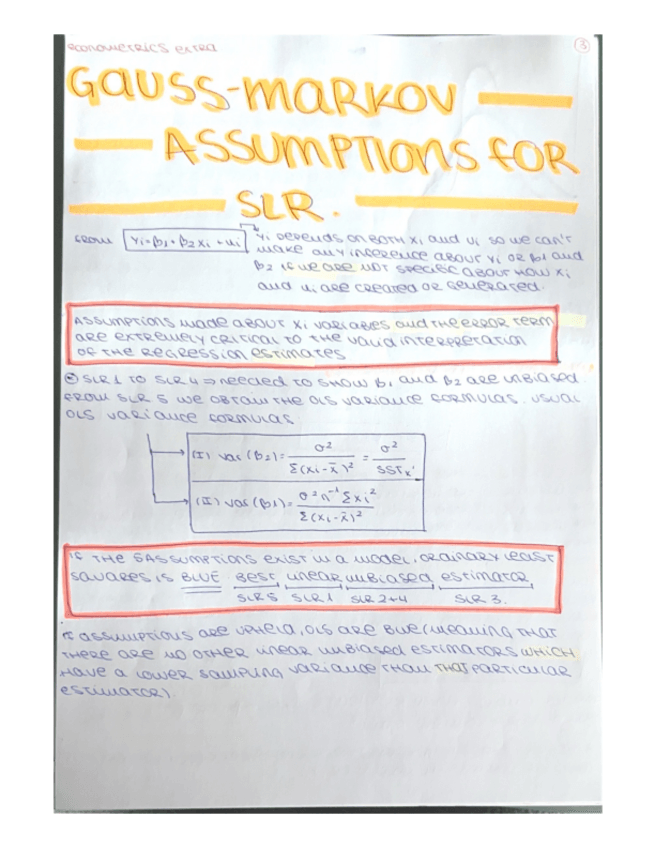 ECONOMETRICS EXTRA
3
GAUSS-MARKOV
ASSUMPTIONS FOR
SLR.
FROM Yi=β1+β2Xi+ui Yi DEPENDS ON BOTH Xi AND Ui SO WE CAN'T
MAKE ANY INFERENCE ABOUT Yi OR β1 AND
β2 IF WE ARE NOT SPECIFIC ABOUT HOW Xi
AND Ui ARE CREATED OR GENERATED.
ASSUMPTIONS MADE ABOUT Xi VARIABLES AND THE ERROR TERM
ARE EXTREMELY CRITICAL TO THE VALID INTERPRETATION
OF THE REGRESSION ESTIMATES
SLR1 TO SLR4 ⇒ NEEDED TO SHOW β1 AND β2 ARE UNBIASED.
FROM SLR 5 WE OBTAIN THE OLS VARIANCE FORMULAS. USUAL
OLS VARIANCE FORMULAS
(I) Var(β2)= σ² / Σ(Xi-X̄)² = σ² / SSTx
(I) Var(β1)= σ²n⁻¹ΣXi² / Σ(Xi-X̄)²
IF THE 5ASSUMPTIONS EXIST IN A MODEL, ORDINARY LEAST
SQUARES IS BLUE BEST, LINEAR UNBIASED ESTIMATOR
SLR5 SLR1 SLR 2+4 SLR 3.
ASSUMPTIONS ARE UPHELD, OLS ARE BLUE(MEANING THAT
THERE ARE NO OTHER LINEAR UNBIASED ESTIMATORS WHICH
HAVE A LOWER SAMPLING VARIANCE THAN THAT PARTICULAR
ESTIMATOR).